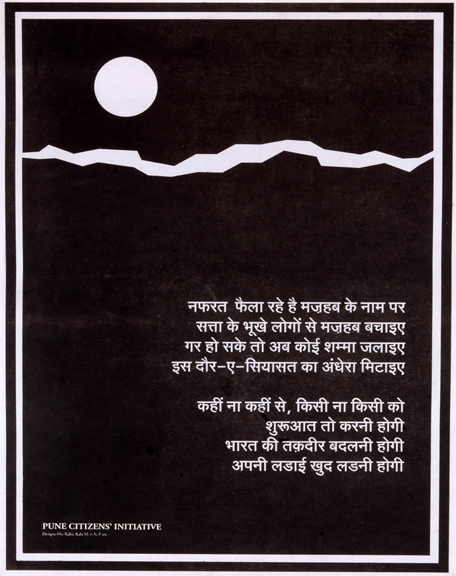 नफरत फैला रहे है मज़हब के नाम पर
सत्ता के भूखे लोगों से मज़हब बचाइए
गर हो सके तो अब कोई शम्मा जलाइए
इस दौर-ए-सियासत का अंधेरा मिटाइए
कहीं ना कहीं से, किसी ना किसी को
शुरूआत तो करनी होगी
भारत की तक़दीर बदलनी होगी
अपनी लडाई खुद लडनी होगी
PUNE CITIZENS' INITIATIVE